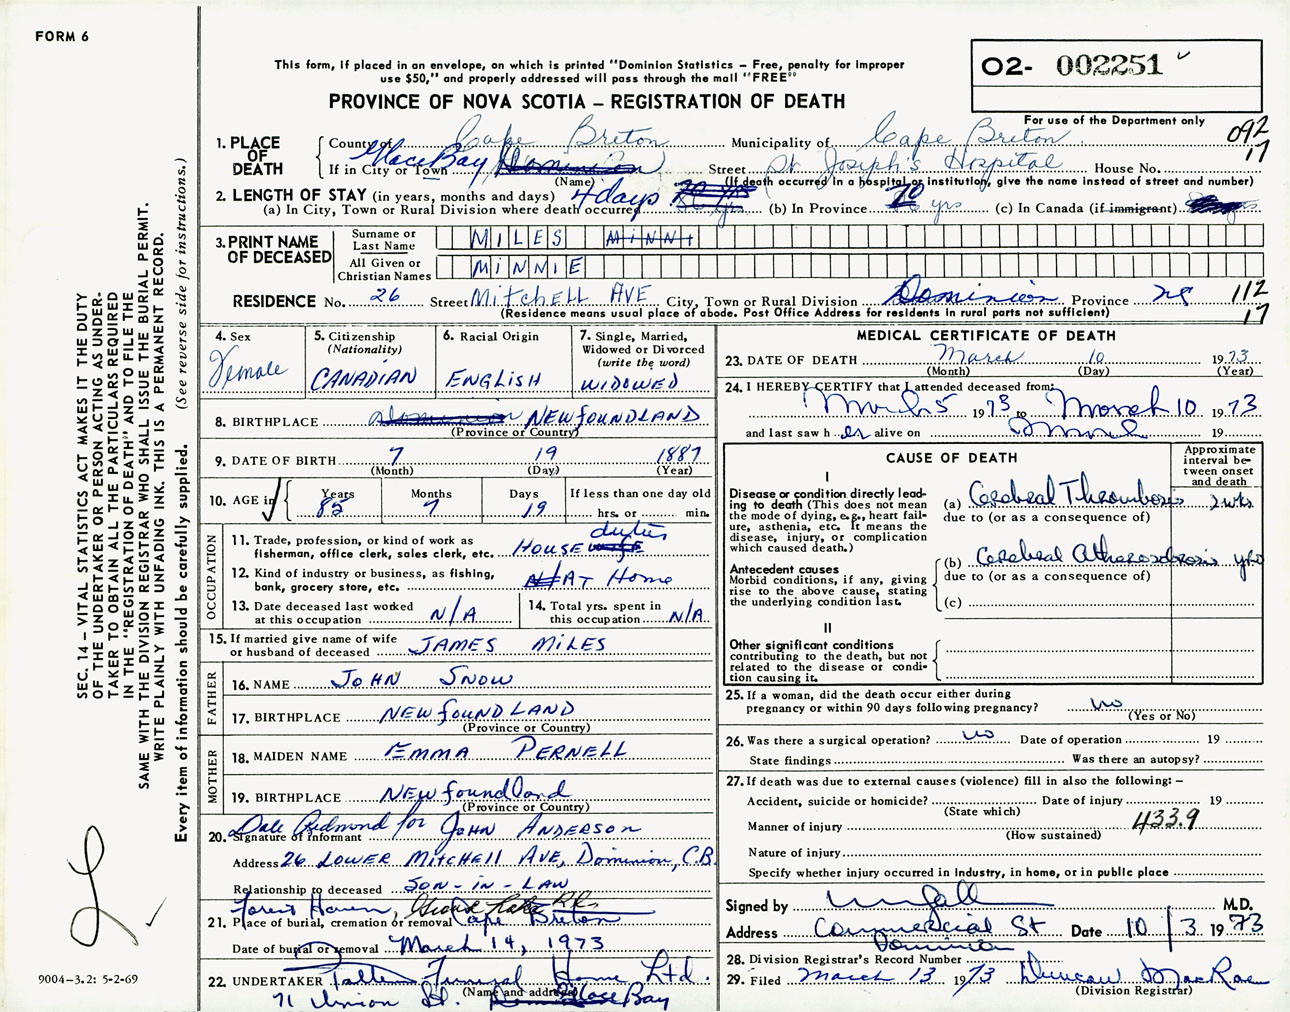 FORM 6
This form, if placed in an envelope, on which is printed "Dominion Statistics – Free, penalty for improper
use $50," and properly addressed will pass through the mail "FREE"
PROVINCE OF NOVA SCOTIA – REGISTRATION OF DEATH
O2- 002251
For use of the Department only
092
17
1. PLACE OF DEATH
County of Cape Breton Municipality of Cape Breton
If in City or Town Glace Bay Dominion Street St Joseph's Hospital House No.
(Name) (If death occurred in a hospital or institution, give the name instead of street and number)
2. LENGTH OF STAY (in years, months and days) 4 days
(a) In City, Town or Rural Division where death occurred (b) In Province 70 yrs (c) In Canada (if immigrant)
3. PRINT NAME OF DECEASED
Surname or Last Name MILES MINNI
All Given or Christian Names MINNIE
RESIDENCE No. 26 Street Mitchell AVE City, Town or Rural Division Dominion Province NS 112
(Residence means usual place of abode. Post Office Address for residents in rural parts not sufficient) 17
4. Sex Female
5. Citizenship (Nationality) CANADIAN
6. Racial Origin ENGLISH
7. Single, Married, Widowed or Divorced (write the word) WIDOWED
8. BIRTHPLACE Dominion NEWFOUNDLAND
(Province or Country)
9. DATE OF BIRTH 7 19 1887
(Month) (Day) (Year)
10. AGE in Years 85 Months 7 Days 19 If less than one day old hrs. or min.
OCCUPATION
11. Trade, profession, or kind of work as fisherman, office clerk, sales clerk, etc. HOUSE wife duties
12. Kind of industry or business, as fishing, bank, grocery store, etc. AT Home
13. Date deceased last worked at this occupation N/A
14. Total yrs. spent in this occupation N/A
15. If married give name of wife or husband of deceased JAMES MILES
FATHER
16. NAME JOHN SNOW
17. BIRTHPLACE NEWFOUNDLAND
(Province or Country)
MOTHER
18. MAIDEN NAME EMMA PERNELL
19. BIRTHPLACE Newfoundland
(Province or Country)
20. Signature of Informant Dale Redmond for JOHN ANDERSON
Address 26 LOWER MITCHELL AVE, Dominion, C.B.
Relationship to deceased SON-IN-LAW
21. Place of burial, cremation or removal Forest Haven, Grand Lake Rd Cape Breton
Date of burial or removal March 14, 1973
22. UNDERTAKER Funeral Home Ltd.
(Name and address)
71 Union St. Glace Bay
MEDICAL CERTIFICATE OF DEATH
23. DATE OF DEATH March 10 1973
(Month) (Day) (Year)
24. I HEREBY CERTIFY that I attended deceased from:
March 5 1973 to March 10 1973
and last saw h er alive on 19
CAUSE OF DEATH
Approximate interval between onset and death
I
Disease or condition directly leading to death (This does not mean the mode of dying, e.g., heart failure, asthenia, etc. It means the disease, injury, or complication which caused death.)
(a) Cerebral Thrombosis 2 wks
due to (or as a consequence of)
Antecedent causes
Morbid conditions, if any, giving rise to the above cause, stating the underlying condition last.
(b) Cerebral Atherosclerosis yrs
due to (or as a consequence of)
(c)
II
Other significant conditions contributing to the death, but not related to the disease or condition causing it.
25. If a woman, did the death occur either during pregnancy or within 90 days following pregnancy? no
(Yes or No)
26. Was there a surgical operation? no Date of operation 19
State findings Was there an autopsy?
27. If death was due to external causes (violence) fill in also the following: –
Accident, suicide or homicide? Date of injury 19
(State which)
Manner of injury 433.9
(How sustained)
Nature of injury
Specify whether injury occurred in industry, in home, or in public place
Signed by M.D.
Address Commercial St Dominion Date 10/3 1973
28. Division Registrar's Record Number
29. Filed March 13 1973 Duncan MacRae
(Division Registrar)
SEC. 14 – VITAL STATISTICS ACT MAKES IT THE DUTY
OF THE UNDERTAKER OR PERSON ACTING AS UNDER-
TAKER TO OBTAIN ALL THE PARTICULARS REQUIRED
IN THE "REGISTRATION OF DEATH" AND TO FILE THE
SAME WITH THE DIVISION REGISTRAR WHO SHALL ISSUE THE BURIAL PERMIT.
WRITE PLAINLY WITH UNFADING INK. THIS IS A PERMANENT RECORD.
Every item of information should be carefully supplied. (See reverse side for instructions.)
9004-3.2: 5-2-69